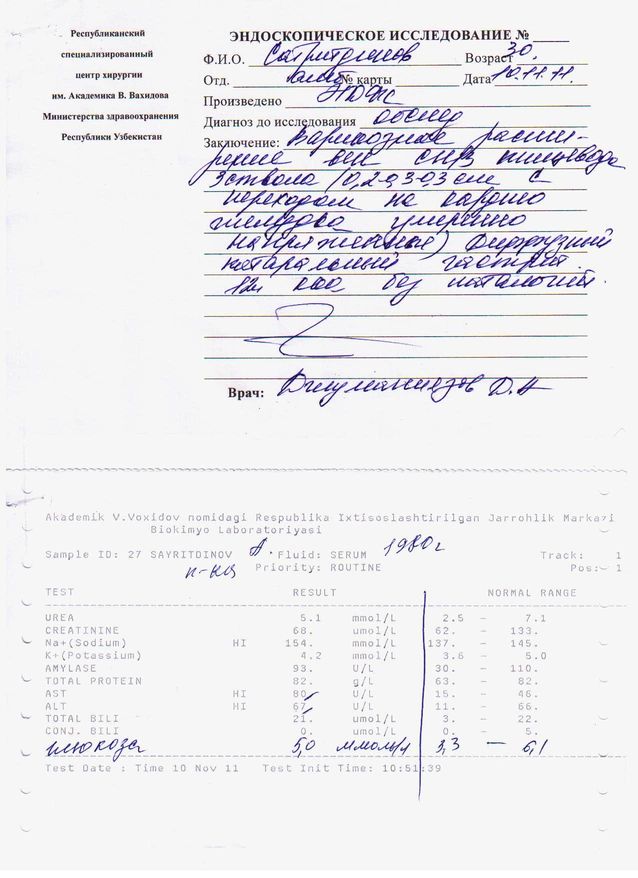 Республиканский
специализированный
центр хирургии
им. Академика В. Вахидова
Министерства здравоохранения
Республики Узбекистан
ЭНДОСКОПИЧЕСКОЕ ИССЛЕДОВАНИЕ №
Ф.И.О. Возраст 30.
Отд. № карты Дата 10.11.11.
Произведено
Диагноз до исследования обслед
Заключение: Варикозное расши-
рение вен пищевода
3 ствола (0,2-0,3-0,3 см с
переходом на кардию
желудка умеренно
напряженная) Диффузный
катаральный гастрит.
12п без патологии.
Врач: Джуманиязов Д.А
Akademik V.Voxidov nomidagi Respublika Ixtisoslashtirilgan Jarrohlik Markazi
Biokimyo Laboratoriyasi
Sample ID: 27 SAYRITDINOV А. Fluid: SERUM 1980г Track: 1
Priority: ROUTINE Pos: 1
TEST RESULT NORMAL RANGE
UREA 5.1 mmol/L 2.5 - 7.1
CREATININE 68. umol/L 62. - 133.
Na+(Sodium) HI 154. mmol/L 137. - 145.
K+(Potassium) 4.2 mmol/L 3.6 - 5.0
AMYLASE 93. U/L 30. - 110.
TOTAL PROTEIN 82. g/L 63. - 82.
AST HI 80. U/L 15. - 46.
ALT HI 67. U/L 11. - 66.
TOTAL BILI 21. umol/L 3. - 22.
CONJ. BILI 0. umol/L 0. - 5.
глюкоза 5,0 ммоль/л 3,3 - 6,1
Test Date : Time 10 Nov 11 Test Init Time: 10:51:39